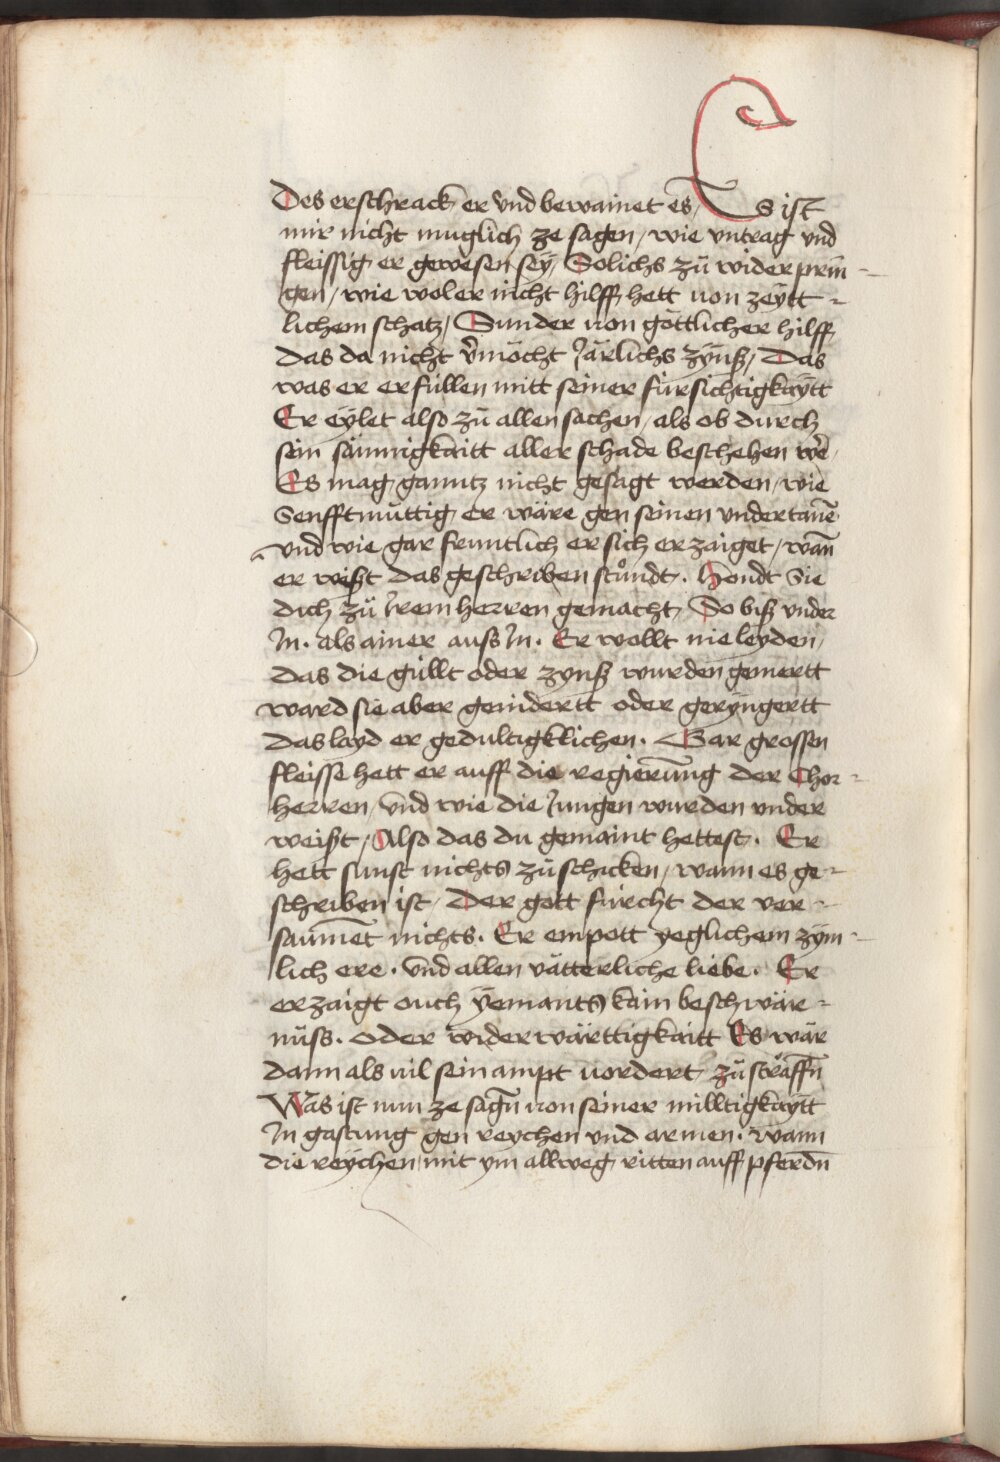 Des erschrack er vnd bewainet es / Es ist
mir nicht muglich ze sagen / wie vntrag vnd
fleissig er gewesen sey / Solichs zů wider prin¬
gen / wie wol er nicht hilff hett von zeytt¬
lichem schatz / Sunder von göttlicher hilff
das da nicht v̄möcht Järlichs zÿnß / Das
was er erfüllen mitt seiner fürsichtigkaÿtt
Er eylet also zů allen sachen / als ob durch
sein säumigkaitt aller schade beschehen wē /
Es mag ganntz nicht gesagt werden / wie
Senfftmüttig er wäre gen seinen vndertanē
vnd wie gar fruntlich er sich erzaiget / wan̄
er wißt das geschriben stůndt . Hondt Sie
dich zů Jrem herren gemacht / So biß vnder
Jn . als ainer auss Jn . Er wollt nie leyden /
das die güllt oder zynß wurden gemertt
ward sie aber gemidertt oder geryngertt
das layd er gedultigklichen . Gar grossen
fleisse hett er auff die regierūng der Chor¬
herren / vnd wie die Jungen wurden vnder
weißt / Also das du gemaint hettest . Er
hett sunst nichts zů schicken / wann es ge¬
schriben ist / Der gott fürcht der ver¬
saūmet nichts . Er empott yeglichem zÿm¬
lich ere . vnd allen vätterliche liebe . Er
erzaigt ouch ÿemants kain beschwär¬
nüss . oder widerwärttigkaitt Es wär
dann als vil sein ampt vordert zů sträffn̄
Was ist nun ze sagn̄ von seiner milltigkaÿtt
Jn gastung gen reychen vnd armen . wann
die reÿchen mit ym allweg ritten auff pferdn̄